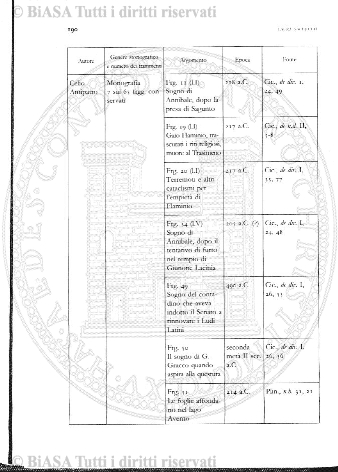 © BiASA Tutti i diritti riservati
190
Autore
Genere storiografico
e numero dei frammenti
Argomento
Epoca
Fonte
Celio
Antipatro
Monografia
7 sui 65 frgg. con
servati
Frg. 11 (LI)
Sogno di
Annibale, dopo la
presa di Sagunto
218 a.C.
Cic., de div. I,
24, 49
Frg. 19 (LI)
Gaio Flaminio, tra-
scurati i riti religiosi,
muore al Trasimeno
217 a.C.
Cic., de n.d. II,
3-8
Frg. 20 (LI)
Terremoti e altri
cataclismi per
l'empietà di
Flaminio
217 a.C.
Cic., de div. I,
35, 77
Frg. 34 (LV)
Sogno di
Annibale, dopo il
tentativo di furto
nel tempio di
Giunone Lacinia
a.C. (?)
Cic., de div. I,
24, 48
Frg. 49
Sogno del conta-
dino che aveva
indotto il Senato a
rinnovare i Ludi
Latini
496 a.C.
Cic., de div. I,
26, 55
Frg. 50
Il sogno di G.
Gracco quando
aspira alla questura
seconda
metà II sec.
a.C.
Cic., de div. I,
26, 56
Frg. 51
Le foglie affonda-
no nel lago
Averno
214 a.C.
Plin., n.h. 31, 21
© BiASA Tutti i diritti riservati